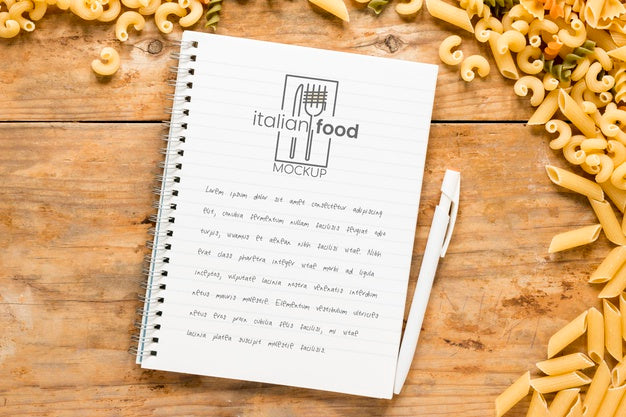 italian food
MOCKUP
Lorem ipsum dolor sit amet consectetur adipiscing
elit, conubia fermentum nullam facilisis feugiat odio
turpis, vivamus et aenean nibh facilisis vitae. Nibh
erat class pharetra integer vitae morbi ad ligula
inceptos, vulputate lacinia nostra venenatis interdum
netus mauris molestie. Elementum vestibulum ultricies
netus eros proin cubilia felis facilisis, mi vitae
lacinia platea suscipit molestie facilisis.